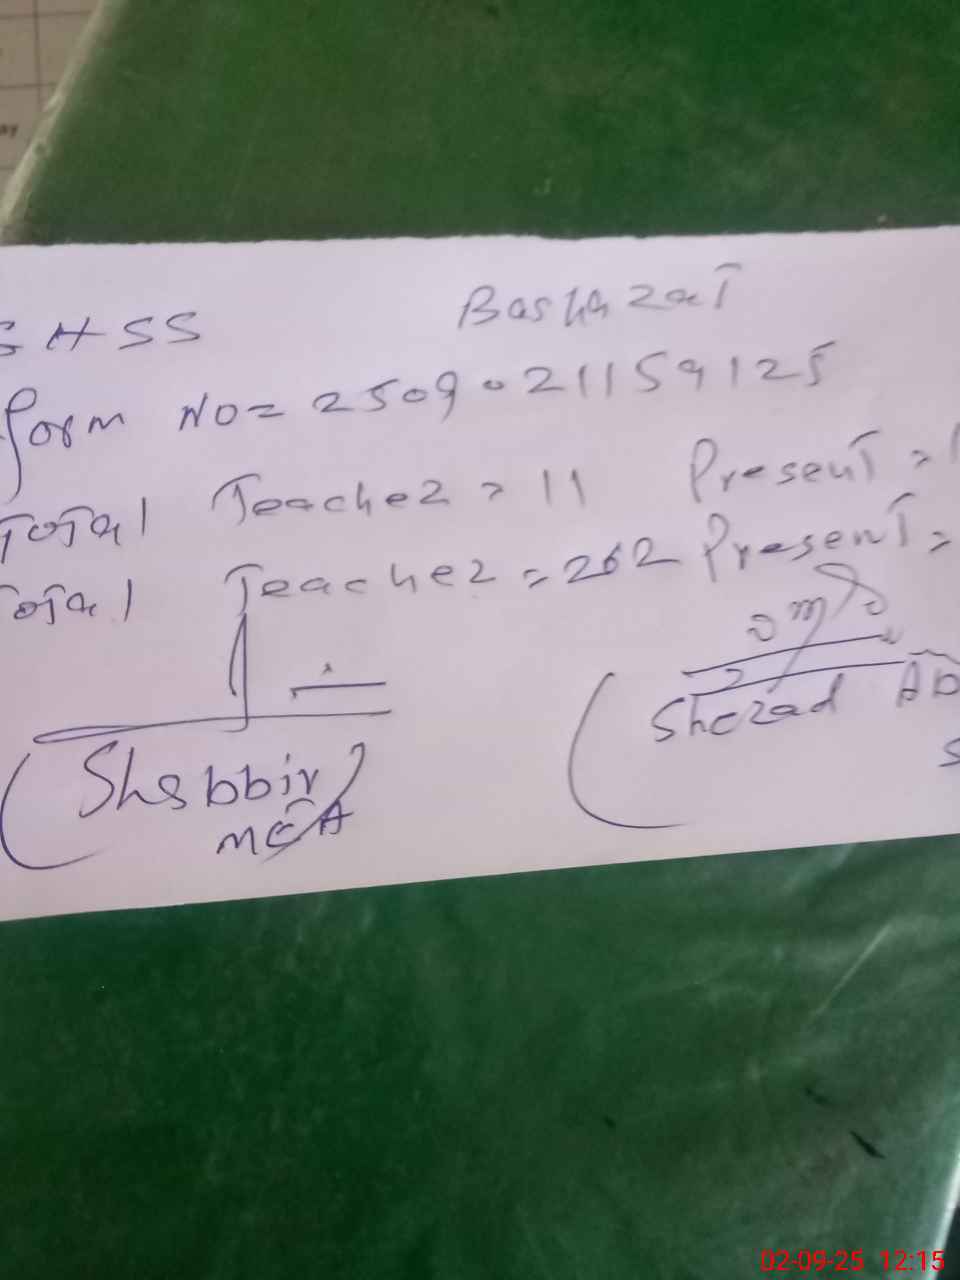 GHSS Basharat
form No = 2509021159125
Total Teacher = 11 Present =
Total Teacher = 262 Present =
(Shabbir)
MEA
(Shezad Ab
S
02-09-25 12:15